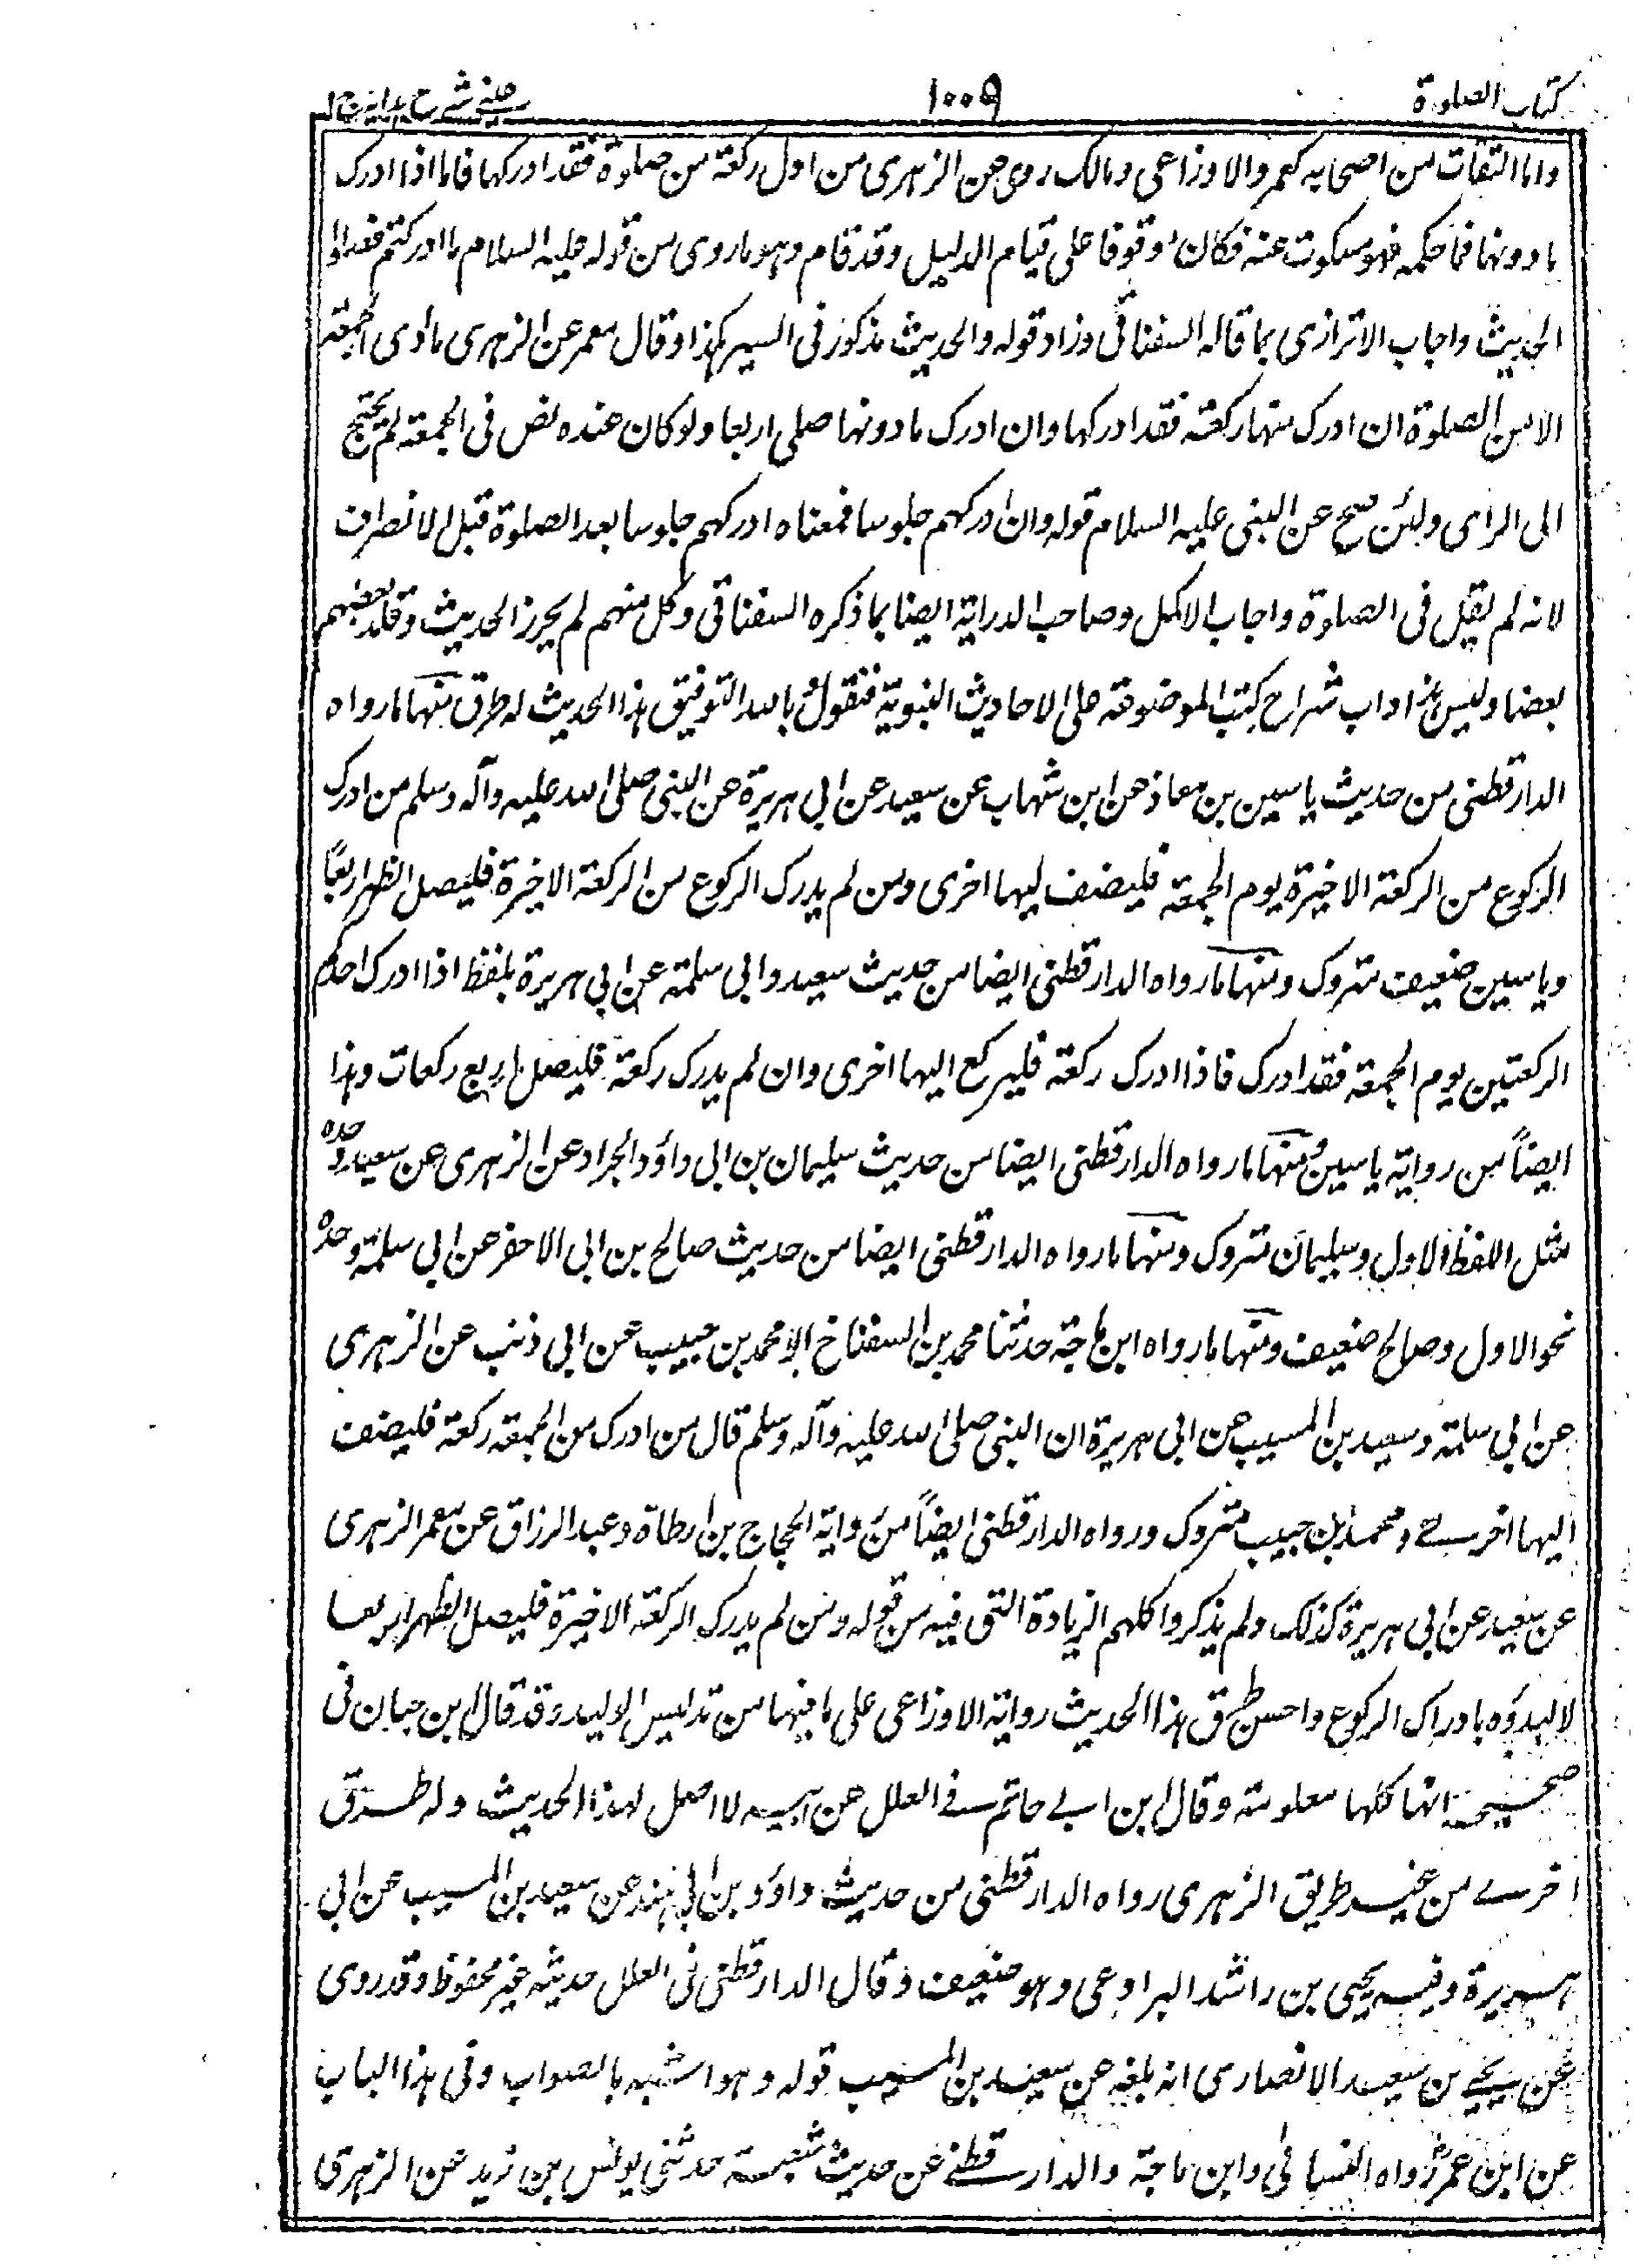 كتاب الصلوة ١٠٠٩ عيني شرح هداية ج ١
واما الثقات من اصحابه كمعمر والاوزاعى ومالك روى عن الزهرى من ادرك ركعة من صلوة فقد ادركها فاما اذا ادرك
ما دونها فما حكمه فهو مسكوت عنه فكان موقوفا على قيام الدليل وقد قام وهو ما روى من قوله عليه السلام ما ادركتم فصلوا
الحديث واجاب الاترازى بما قاله السغناقى وزاد قوله والحديث مذكور فى السير هكذا وقال معمر عن الزهرى ما ارى الجمعة
الا من الصلوة ان ادرك منها ركعة فقد ادركها وان ادرك ما دونها صلى اربعا ولو كان عنده نص فى الجمعة لم يحتج
الى الراى ولئن صح عن النبى عليه السلام قوله وان ادركهم جلوسا فمعناه ادركهم جلوسا بعد الصلوة قبل الانصراف
لانه لم يقل فى الصلوة واجاب الاكمل وصاحب الدراية ايضا بما ذكره السغناقى وكل منهم لم يحرر الحديث وقلد بعضهم
بعضا وليس هذا داب شراح كتب الموضوعة على الاحاديث النبوية فنقول وبالله التوفيق هذا الحديث له طرق منها ما رواه
الدارقطنى من حديث ياسين بن معاذ عن ابن شهاب عن سعيد عن ابى هريرة عن النبى صلى الله عليه وآله وسلم من ادرك
الركوع من الركعة الاخيرة يوم الجمعة فليضف اليها اخرى ومن لم يدرك الركوع من الركعة الاخيرة فليصل الظهر اربعًا
وياسين ضعيف متروك ومنها ما رواه الدارقطنى ايضا من حديث سعيد وابى سلمة عن ابى هريرة بلفظ اذا ادرك احدكم
الركعتين يوم الجمعة فقد ادرك فاذا ادرك ركعة فليركع اليها اخرى وان لم يدرك ركعة فليصل اربع ركعات وهذا
ايضاً من رواية ياسين ومنها ما رواه الدارقطنى ايضا من حديث سليمان بن ابى داؤد الجراد عن الزهرى عن سعيد وحده
مثل اللفظ الاول وسليمان متروك ومنها ما رواه الدارقطنى ايضا من حديث صالح بن ابى الاخضر عن ابى سلمة وحده
نحو الاول وصالح ضعيف ومنها ما رواه ابن ماجة حدثنا محمد بن السفناخ الا محمد بن حبيب عن ابى ذئب عن الزهرى
عن ابى سلمة وسعيد بن المسيب عن ابى هريرة ان النبى صلى الله عليه وآله وسلم قال من ادرك من الجمعة ركعة فليضف
اليها اخرے ومحمد بن حبيب متروك ورواه الدارقطنى ايضاً من رواية الحجاج بن ارطاة وعبد الرزاق عن معمر الزهرى
عن سعيد عن ابى هريرة كذلك ولم يذكروا كلهم الزيادة التى فيه من قوله ومن لم يدرك الركعة الاخيرة فليصل الظهر اربعا
لا ادراك الركوع واحسن طرق هذا الحديث رواية الاوزاعى على ما فيها من تدليس الوليد وقد قال ابن حبان فى
صحيحه انها كلها معلولة وقال ابن ابے حاتم فے العلل عن ابيه لا اصل لهذا الحديث وله طرق
اخرے من غير طريق الزهرى رواه الدارقطنى من حديث داؤد بن ابى هند عن سعيد بن المسيب عن ابى
هريرة وفيه يحيى بن راشد البراوعى وهو ضعيف وقال الدارقطنى فى العلل حديثه غير محفوظ وقد روى
عن يحيے بن سعيد الانصارى انه بلغه عن سعيد بن المسيب قوله وهو اشبه بالصواب وفى هذا الباب
عن ابن عمر رواه النسائى وابن ماجة والدارقطنے عن حديث شعبة حدثنى يونس بن زيد عن الزهرى